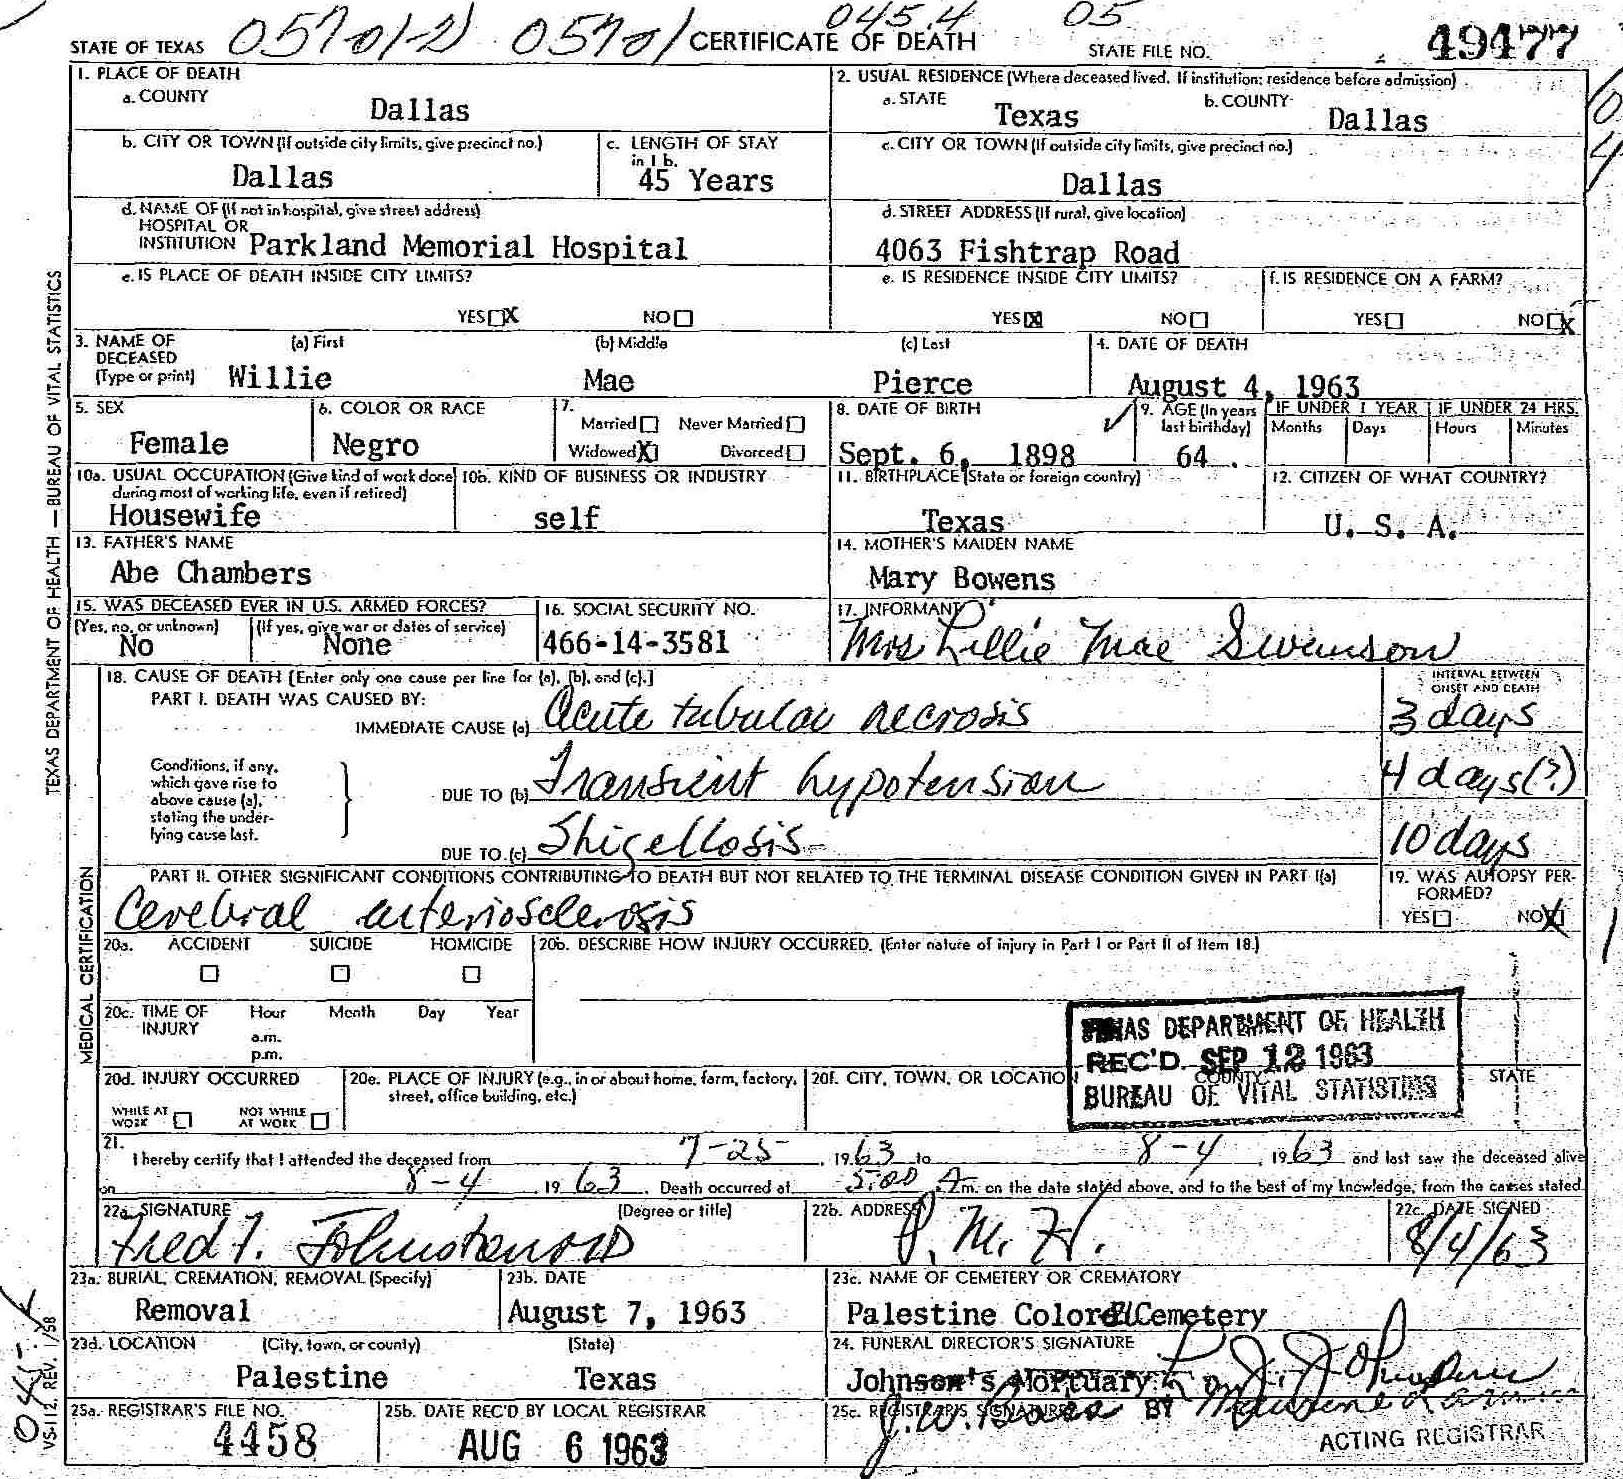 STATE OF TEXAS 05701-2 05701 CERTIFICATE OF DEATH 045.4 05 STATE FILE NO. 49477
1. PLACE OF DEATH
a. COUNTY
Dallas
2. USUAL RESIDENCE (Where deceased lived. If institution: residence before admission)
a. STATE
Texas
b. COUNTY
Dallas
b. CITY OR TOWN (If outside city limits, give precinct no.)
Dallas
c. LENGTH OF STAY
in 1 b.
45 Years
c. CITY OR TOWN (If outside city limits, give precinct no.)
Dallas
d. NAME OF (If not in hospital, give street address)
HOSPITAL OR
INSTITUTION Parkland Memorial Hospital
d. STREET ADDRESS (If rural, give location)
4063 Fishtrap Road
e. IS PLACE OF DEATH INSIDE CITY LIMITS?
YES X NO
e. IS RESIDENCE INSIDE CITY LIMITS?
YES X NO
f. IS RESIDENCE ON A FARM?
YES NO X
3. NAME OF
DECEASED
(Type or print)
(a) First
Willie
(b) Middle
Mae
(c) Last
Pierce
4. DATE OF DEATH
August 4, 1963
5. SEX
Female
6. COLOR OR RACE
Negro
7.
Married Never Married
Widowed X Divorced
8. DATE OF BIRTH
Sept. 6, 1898
9. AGE (In years
last birthday)
64
IF UNDER 1 YEAR
Months Days
IF UNDER 24 HRS.
Hours Minutes
10a. USUAL OCCUPATION (Give kind of work done
during most of working life, even if retired)
Housewife
10b. KIND OF BUSINESS OR INDUSTRY
self
11. BIRTHPLACE (State or foreign country)
Texas
12. CITIZEN OF WHAT COUNTRY?
U. S. A.
13. FATHER'S NAME
Abe Chambers
14. MOTHER'S MAIDEN NAME
Mary Bowens
15. WAS DECEASED EVER IN U.S. ARMED FORCES?
(Yes, no, or unknown)
No
(If yes, give war or dates of service)
None
16. SOCIAL SECURITY NO.
466-14-3581
17. INFORMANT
Mrs Lillie Mae Swanson
18. CAUSE OF DEATH [Enter only one cause per line for (a), (b), and (c).]
PART I. DEATH WAS CAUSED BY:
INTERVAL BETWEEN
ONSET AND DEATH
IMMEDIATE CAUSE (a) Acute tubular necrosis 3 days
Conditions, if any,
which gave rise to
above cause (a),
stating the under-
lying cause last.
DUE TO (b) Transient hypotension 4 days(?)
DUE TO (c) Shigellosis 10 days
PART II. OTHER SIGNIFICANT CONDITIONS CONTRIBUTING TO DEATH BUT NOT RELATED TO THE TERMINAL DISEASE CONDITION GIVEN IN PART I(a)
Cerebral arteriosclerosis
19. WAS AUTOPSY PER-
FORMED?
YES NO X
20a. ACCIDENT SUICIDE HOMICIDE
20b. DESCRIBE HOW INJURY OCCURRED. (Enter nature of injury in Part I or Part II of Item 18.)
20c. TIME OF
INJURY
Hour Month Day Year
a.m.
p.m.
TEXAS DEPARTMENT OF HEALTH
REC'D. SEP 12 1963
BUREAU OF VITAL STATISTICS
20d. INJURY OCCURRED
WHILE AT
WORK
NOT WHILE
AT WORK
20e. PLACE OF INJURY (e.g., in or about home, farm, factory,
street, office building, etc.)
20f. CITY, TOWN, OR LOCATION COUNTY STATE
21.
I hereby certify that I attended the deceased from 7-25, 1963 to 8-4, 1963 and last saw the deceased alive
on 8-4 1963. Death occurred at 5:00 A.m. on the date stated above, and to the best of my knowledge, from the causes stated.
22a. SIGNATURE (Degree or title)
Fred T. Johnston MD
22b. ADDRESS
P. M. H.
22c. DATE SIGNED
8/4/63
23a. BURIAL, CREMATION, REMOVAL (Specify)
Removal
23b. DATE
August 7, 1963
23c. NAME OF CEMETERY OR CREMATORY
Palestine Colored Cemetery
23d. LOCATION (City, town, or county) (State)
Palestine Texas
24. FUNERAL DIRECTOR'S SIGNATURE
Johnson's Mortuary
25a. REGISTRAR'S FILE NO.
4458
25b. DATE REC'D BY LOCAL REGISTRAR
AUG 6 1963
25c. REGISTRAR'S SIGNATURE
J. W. Bass BY
ACTING REGISTRAR
TEXAS DEPARTMENT OF HEALTH — BUREAU OF VITAL STATISTICS
MEDICAL CERTIFICATION
VS-112, REV. 1/58